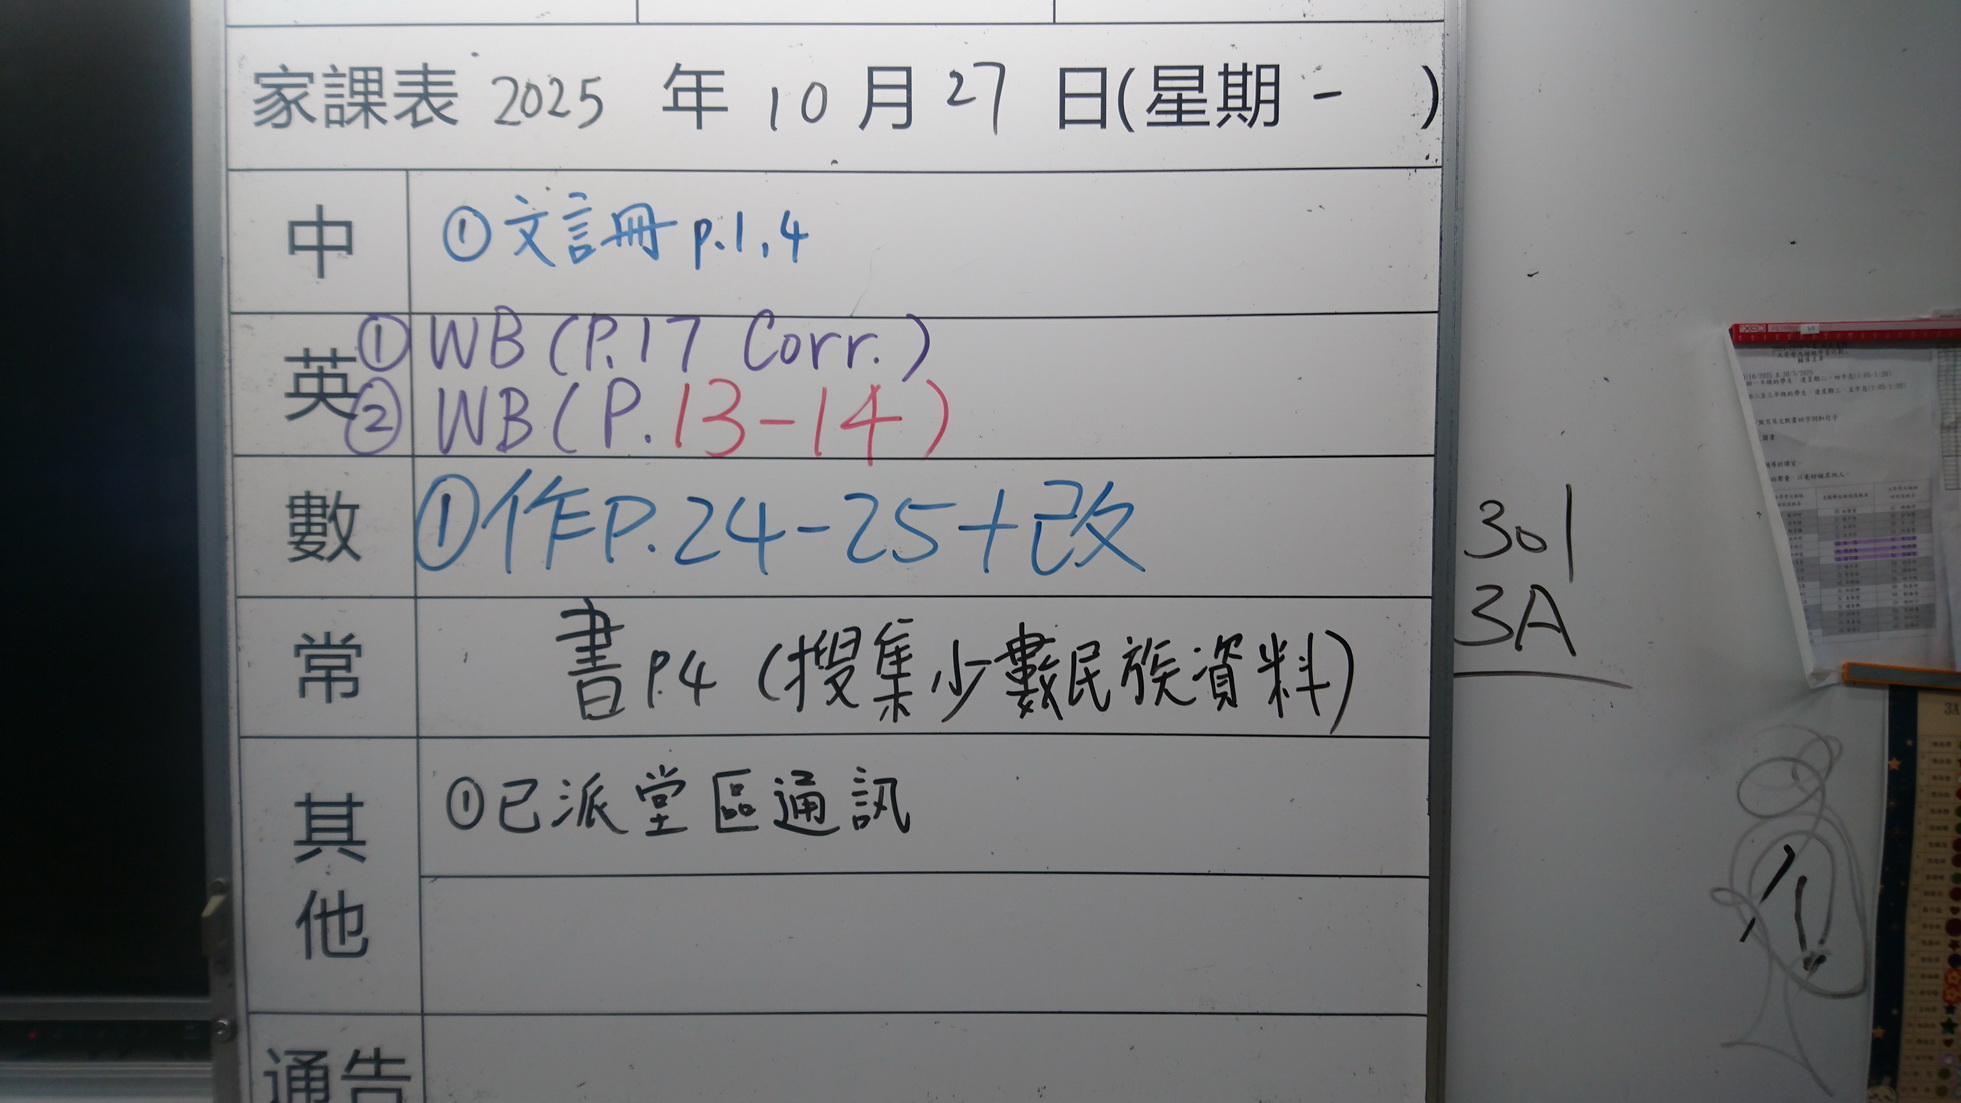 家課表 2025 年 10 月 27 日(星期 一 )
中 ①文言冊 p.1,4
英 ① WB (P.17 Corr.)
② WB (P.13-14)
數 ①作P.24-25+改
常 書 P.4 (搜集少數民族資料)
其他 ①已派堂區通訊
通告
301
3A